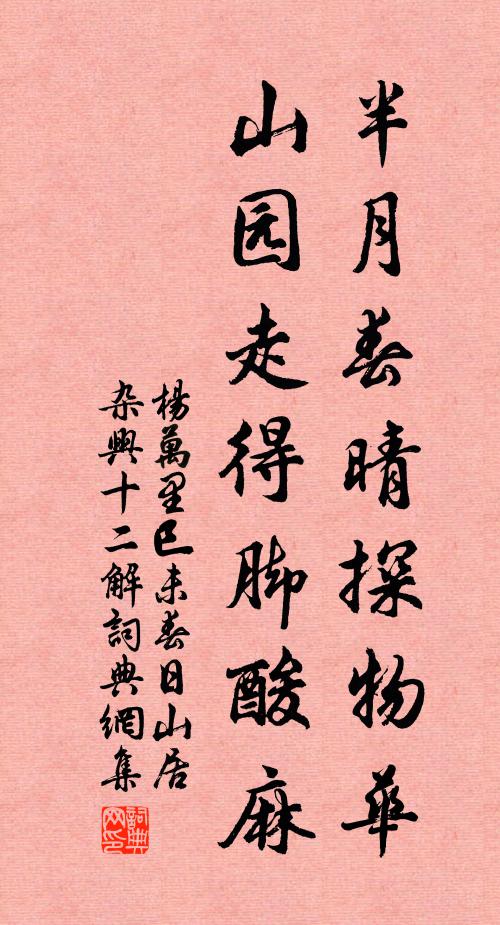 半月春晴探物華
山园走得脚酸麻
楊萬里已未春日山居
杂興十二解詞典網集
詞典
网印